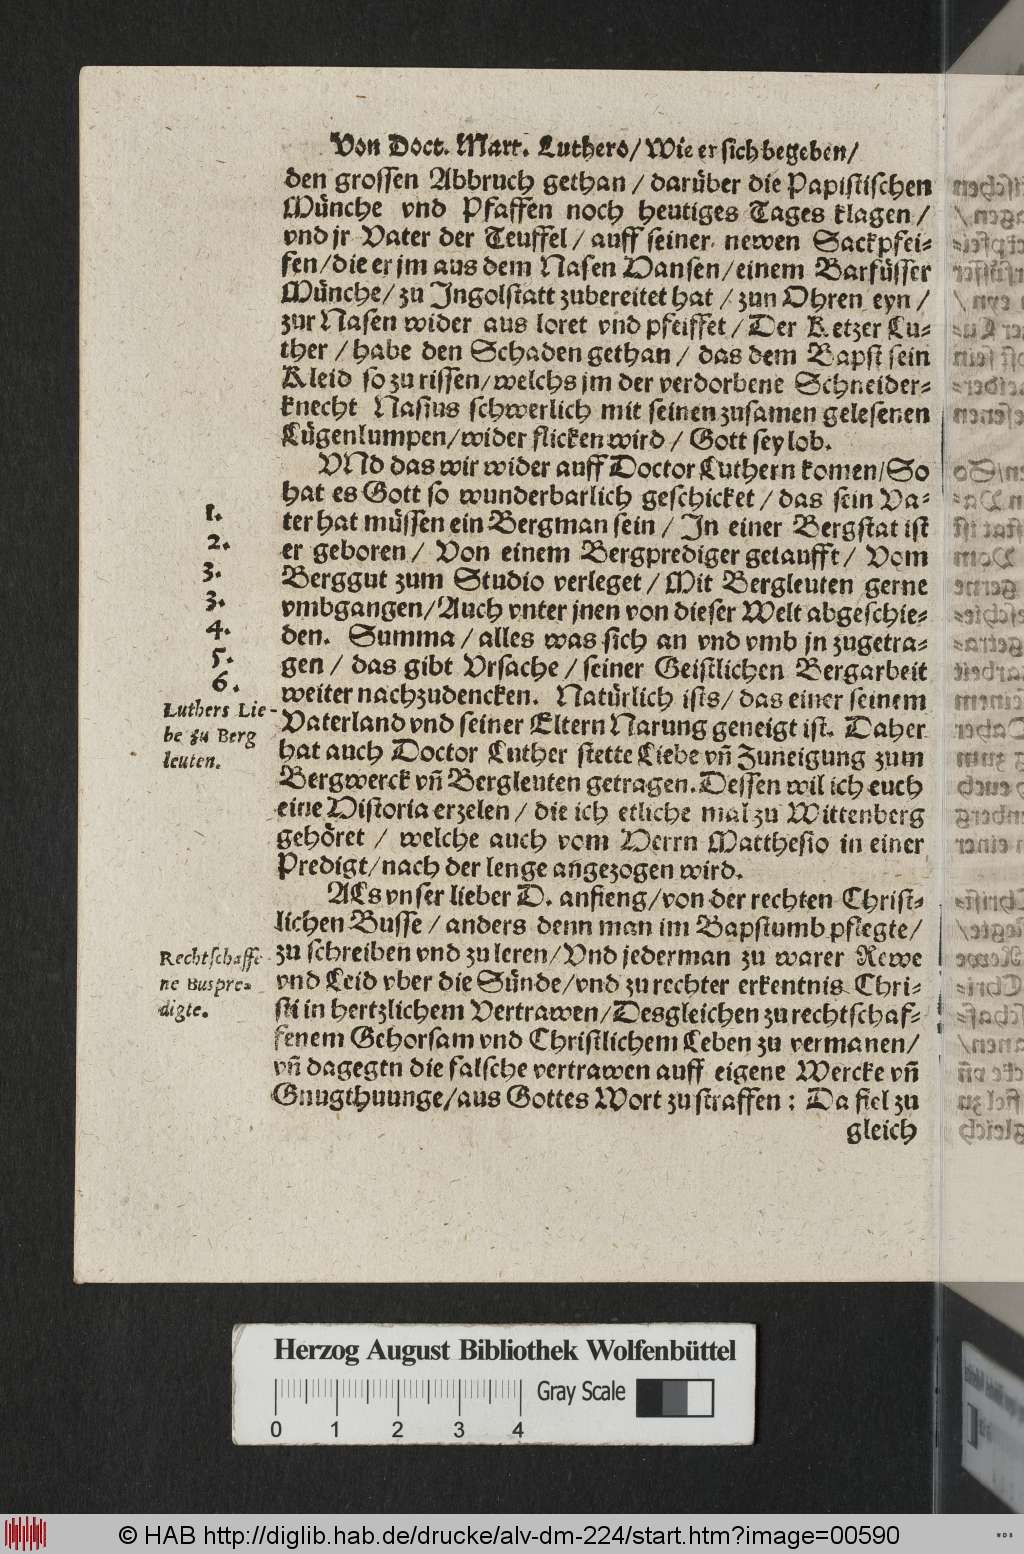 Von Doct. Mart. Luthero/ Wie er sich begeben/
den grossen Abbruch gethan / darüber die Papistischen
Münche vnd Pfaffen noch heutiges Tages klagen /
vnd jr Vater der Teuffel / auff seiner newen Sackpfei-
fen/ die er jm aus dem Nasen Hansen/ einem Barfüsser
Münche/ zu Ingolstatt zubereitet hat / zun Ohren eyn /
zur Nasen wider aus loret vnd pfeiffet / Der Ketzer Lu-
ther / habe den Schaden gethan / das dem Bapst sein
Kleid so zu rissen/ welchs jm der verdorbene Schneider-
knecht Nasius schwerlich mit seinen zusamen gelesenen
Lügenlumpen/ wider flicken wird / Gott sey lob.
VNd das wir wider auff Doctor Luthern komen/ So
hat es Gott so wunderbarlich geschicket / das sein Va-
1.
ter hat müssen ein Bergman sein / In einer Bergstat ist
2.
er geboren / Von einem Bergprediger getaufft / Vom
3.
Berggut zum Studio verleget / Mit Bergleuten gerne
3.
vmbgangen/ Auch vnter jnen von dieser Welt abgeschie-
4.
den. Summa / alles was sich an vnd vmb jn zugetra-
5.
gen / das gibt Vrsache / seiner Geistlichen Bergarbeit
6.
weiter nachzudencken. Natürlich ists/ das einer seinem
Luthers Lie-
Vaterland vnd seiner Eltern Narung geneigt ist. Daher
be zu Berg
hat auch Doctor Luther stette Liebe vñ Zuneigung zum
leuten.
Bergwerck vñ Bergleuten getragen. Dessen wil ich euch
eine Historia erzelen / die ich etliche mal zu Wittenberg
gehöret / welche auch vom Herrn Matthesio in einer
Predigt/ nach der lenge angezogen wird.
ALs vnser lieber D. anfieng/ von der rechten Christ-
lichen Busse / anders denn man im Bapstumb pflegte/
Rechtschaffe
zu schreiben vnd zu leren/ Vnd jederman zu warer Rewe
ne Buspre-
vnd Leid vber die Sünde/ vnd zu rechter erkentnis Chri-
digte.
sti in hertzlichem Vertrawen/ Desgleichen zu rechtschaf-
fenem Gehorsam vnd Christlichem Leben zu vermanen/
vñ dagegen die falsche vertrawen auff eigene Wercke vñ
Gnugthuunge/ aus Gottes Wort zu straffen : Da fiel zu
gleich
Herzog August Bibliothek Wolfenbüttel
Gray Scale
0 1 2 3 4
© HAB http://diglib.hab.de/drucke/alv-dm-224/start.htm?image=00590